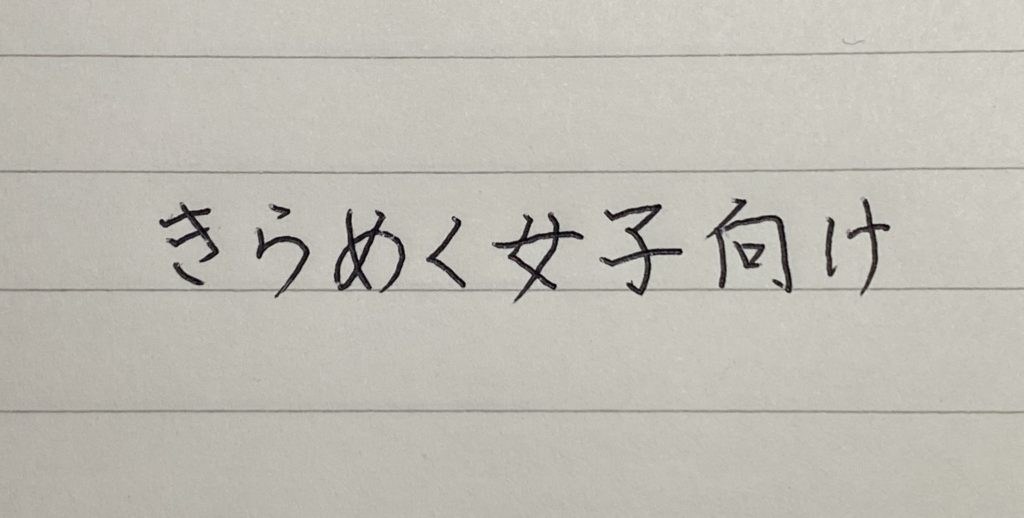 きらめく女子向け